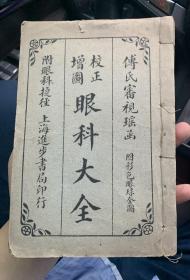 傅氏審視瑶函
附彩色眼球全圖
校正
增圖
眼科大全
上海進步書局印行
附眼科捷徑